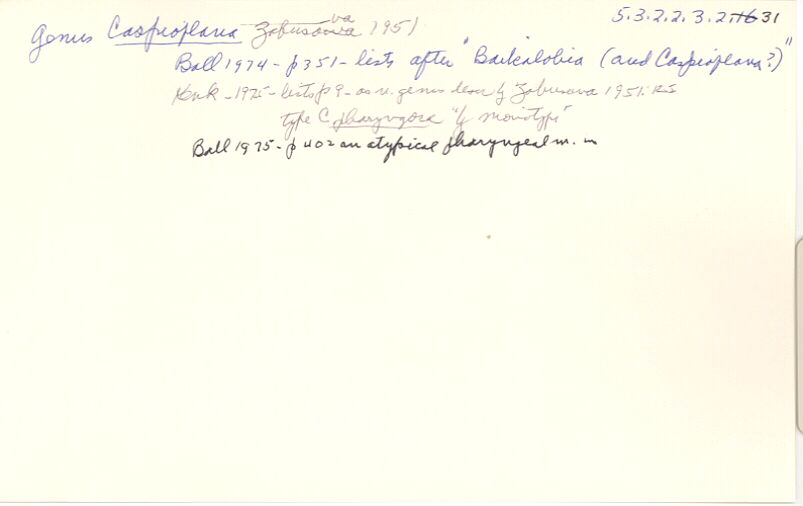 5.3.2.2.3.2.16 31
Genus Caspioplana Zabusova 1951
Ball 1974 - p 351 - lists after "Baikalobia (and Caspioplana?)"
Kenk - 1975 - lists p 9 - as n. genus descr by Zabusova 1951:
type C. pharyngosa "by monotypy"
Ball 1975 - p 402 an atypical pharyngeal m.